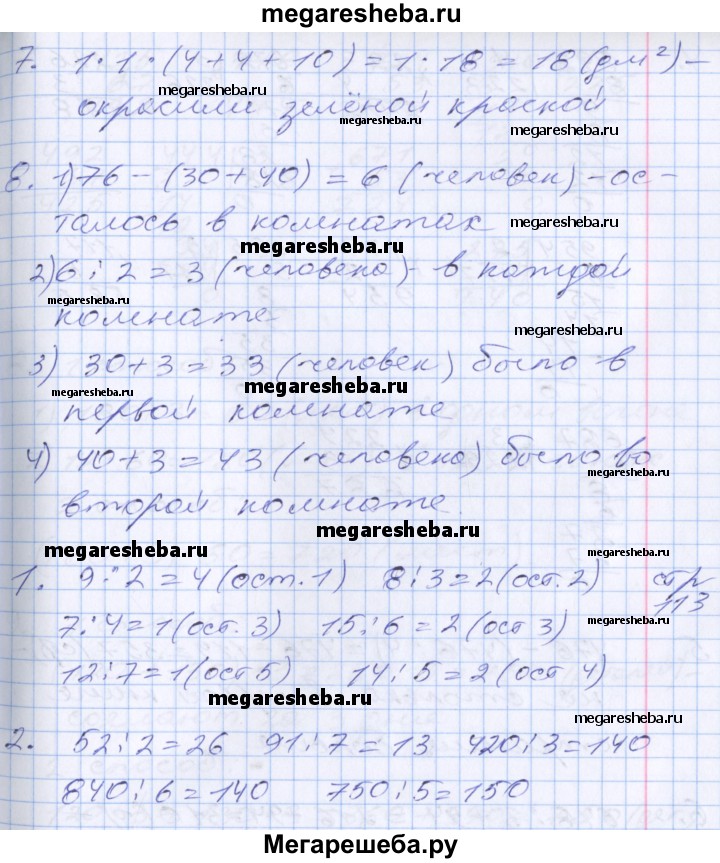 megaresheba.ru
7. 1·1·(4+4+10)=1·18=18(дм²)–
megaresheba.ru megaresheba.ru
окрасили зелёной краской
megaresheba.ru
megaresheba.ru
8. 1) 76-(30+40)=6 (человек)-ос-
талось в комнатах
megaresheba.ru
megaresheba.ru
2) 6:2=3 (человека)- в каждой
megaresheba.ru
комнате
megaresheba.ru
3) 30+3=33 (человек) было в
megaresheba.ru megaresheba.ru
первой комнате
4) 40+3=43 (человека) было во
megaresheba.ru
второй комнате.
megaresheba.ru
megaresheba.ru megaresheba.ru
1. 9:2=4(ост.1) 8:3=2(ост.2) стр
113
7:4=1(ост.3) 15:6=2(ост 3)
megaresheba.ru
12:7=1(ост5) 14:5=2(ост 4)
megaresheba.ru
megaresheba.ru
2. 52:2=26 91:7=13 420:3=140
840:6=140 750:5=150
Мегарешеба.ру